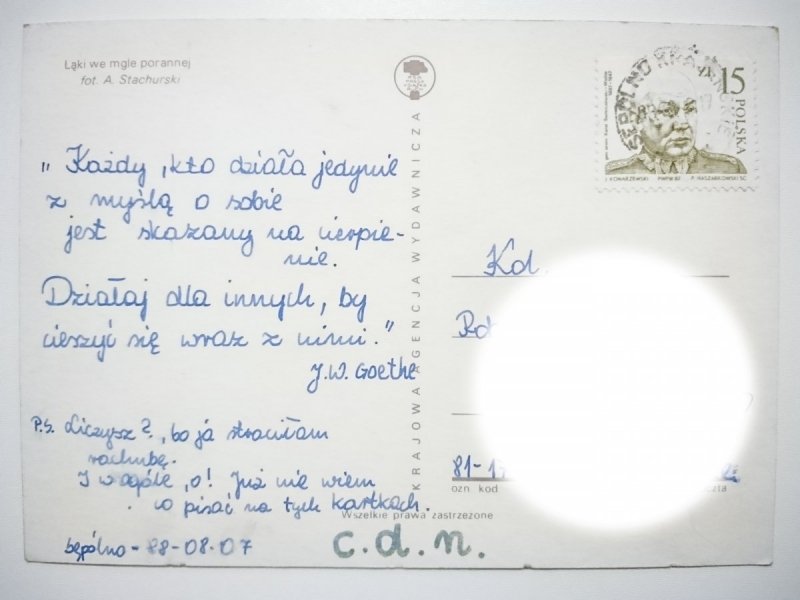 Łąki we mgle porannej
fot. A. Stachurski
„Każdy, kto działa jedynie
z myślą o sobie
jest skazany na cierpie-
nie.
Działaj dla innych, by
cieszyć się wraz z nimi."
J.W. Goethe
P.S. Liczysz?, bo ja straciłam
rachubę.
I w ogóle, o! Już nie wiem
co pisać na tych kartkach.
Sępólno - 88-08-07
c.d.n.
KRAJOWA AGENCJA WYDAWNICZA
Wszelkie prawa zastrzeżone
15
POLSKA
PWPW 87
SĘPÓLNO KRAJEŃSKIE
Kd.
81-1
ozn. kod